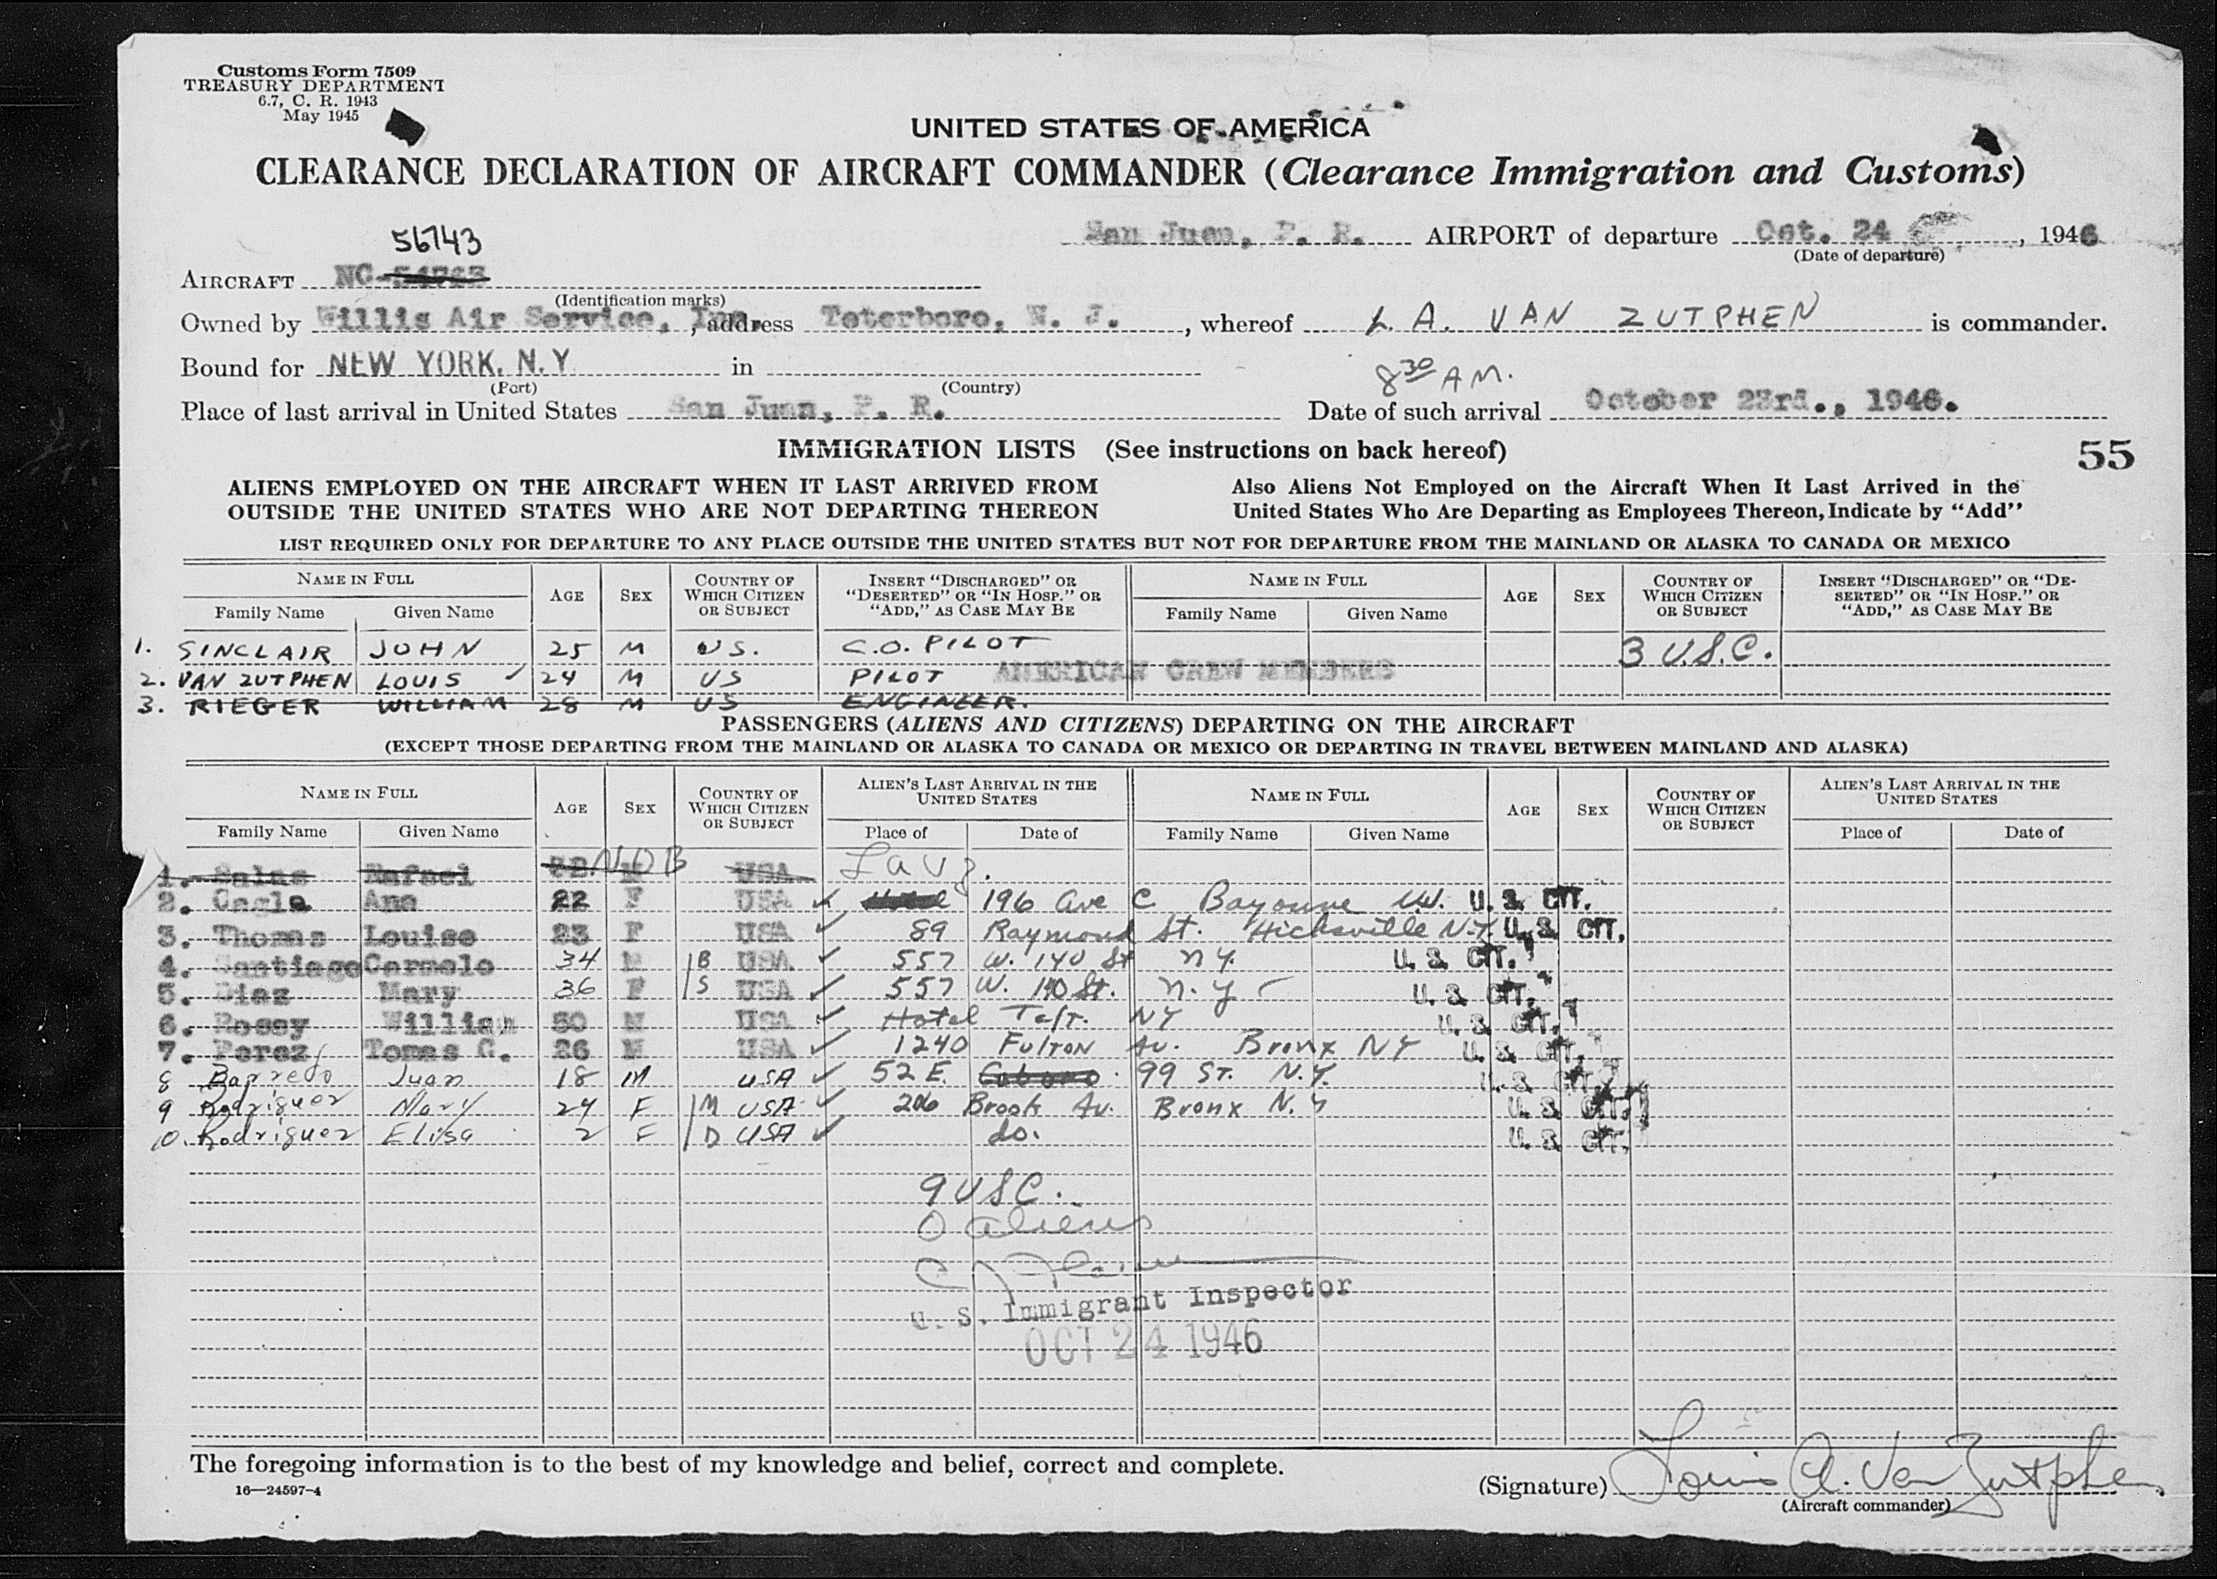 Customs Form 7509
TREASURY DEPARTMENT
6.7, C. R. 1943
May 1945
UNITED STATES OF AMERICA
CLEARANCE DECLARATION OF AIRCRAFT COMMANDER (Clearance Immigration and Customs)
San Juan, P. R. AIRPORT of departure Oct. 24, 1946
(Date of departure)
56743
AIRCRAFT NC-54743
(Identification marks)
Owned by Willis Air Service, Inc., address Teterboro, N. J., whereof L. A. VAN ZUTPHEN is commander.
Bound for NEW YORK, N.Y. in
(Port) (Country)
8 30 AM.
Place of last arrival in United States San Juan, P. R. Date of such arrival October 23rd., 1946.
IMMIGRATION LISTS (See instructions on back hereof)
55
ALIENS EMPLOYED ON THE AIRCRAFT WHEN IT LAST ARRIVED FROM OUTSIDE THE UNITED STATES WHO ARE NOT DEPARTING THEREON
Also Aliens Not Employed on the Aircraft When It Last Arrived in the United States Who Are Departing as Employees Thereon, Indicate by "Add"
LIST REQUIRED ONLY FOR DEPARTURE TO ANY PLACE OUTSIDE THE UNITED STATES BUT NOT FOR DEPARTURE FROM THE MAINLAND OR ALASKA TO CANADA OR MEXICO
NAME IN FULL AGE SEX COUNTRY OF WHICH CITIZEN OR SUBJECT INSERT "DISCHARGED" OR "DESERTED" OR "IN HOSP." OR "ADD," AS CASE MAY BE NAME IN FULL AGE SEX COUNTRY OF WHICH CITIZEN OR SUBJECT INSERT "DISCHARGED" OR "DESERTED" OR "IN HOSP." OR "ADD," AS CASE MAY BE
Family Name Given Name Family Name Given Name
1. SINCLAIR JOHN 25 M US. C.O. PILOT 3 U.S.C.
2. VAN ZUTPHEN LOUIS ✓ 24 M US PILOT AMERICAN CREW MEMBERS
3. RIEGER WILLIAM 28 M US ENGINEER.
PASSENGERS (ALIENS AND CITIZENS) DEPARTING ON THE AIRCRAFT
(EXCEPT THOSE DEPARTING FROM THE MAINLAND OR ALASKA TO CANADA OR MEXICO OR DEPARTING IN TRAVEL BETWEEN MAINLAND AND ALASKA)
NAME IN FULL AGE SEX COUNTRY OF WHICH CITIZEN OR SUBJECT ALIEN'S LAST ARRIVAL IN THE UNITED STATES NAME IN FULL AGE SEX COUNTRY OF WHICH CITIZEN OR SUBJECT ALIEN'S LAST ARRIVAL IN THE UNITED STATES
Family Name Given Name Place of Date of Family Name Given Name Place of Date of
1. Salas Rafael N O B M USA
2. Cagle Ana 22 F USA ✓ 196 Ave C Bayonne U. S. CIT.
3. Thomas Louise 23 F USA ✓ 89 Raymond St. Hicksville N.Y. U. S. CIT.
4. Santiago Carmelo 34 M B USA ✓ 557 W. 140 St N.Y. U. S. CIT.
5. Diaz Mary 36 F S USA ✓ 557 W. 140 St. N.Y. U. S. CIT.
6. Rosey William 50 M USA ✓ Hotel Taft. NY U. S. CIT.
7. Perez Tomas G. 26 M USA ✓ 1240 FULTON Av. Bronx NY U. S. CIT.
8 Barreto Juan 18 M USA ✓ 52 E. 99 ST. N.Y. U. S. CIT.
9 Rodriguez Mary 24 F M USA ✓ 206 Brook Av. Bronx N.Y U. S. CIT.
10. Rodriguez Elisa 2 F D USA ✓ do. U. S. CIT.
9 USC.
0 aliens
U. S. Immigrant Inspector
OCT 24 1946
The foregoing information is to the best of my knowledge and belief, correct and complete.
16—24597-4
(Signature) Louis A. Van Zutphen
(Aircraft commander)